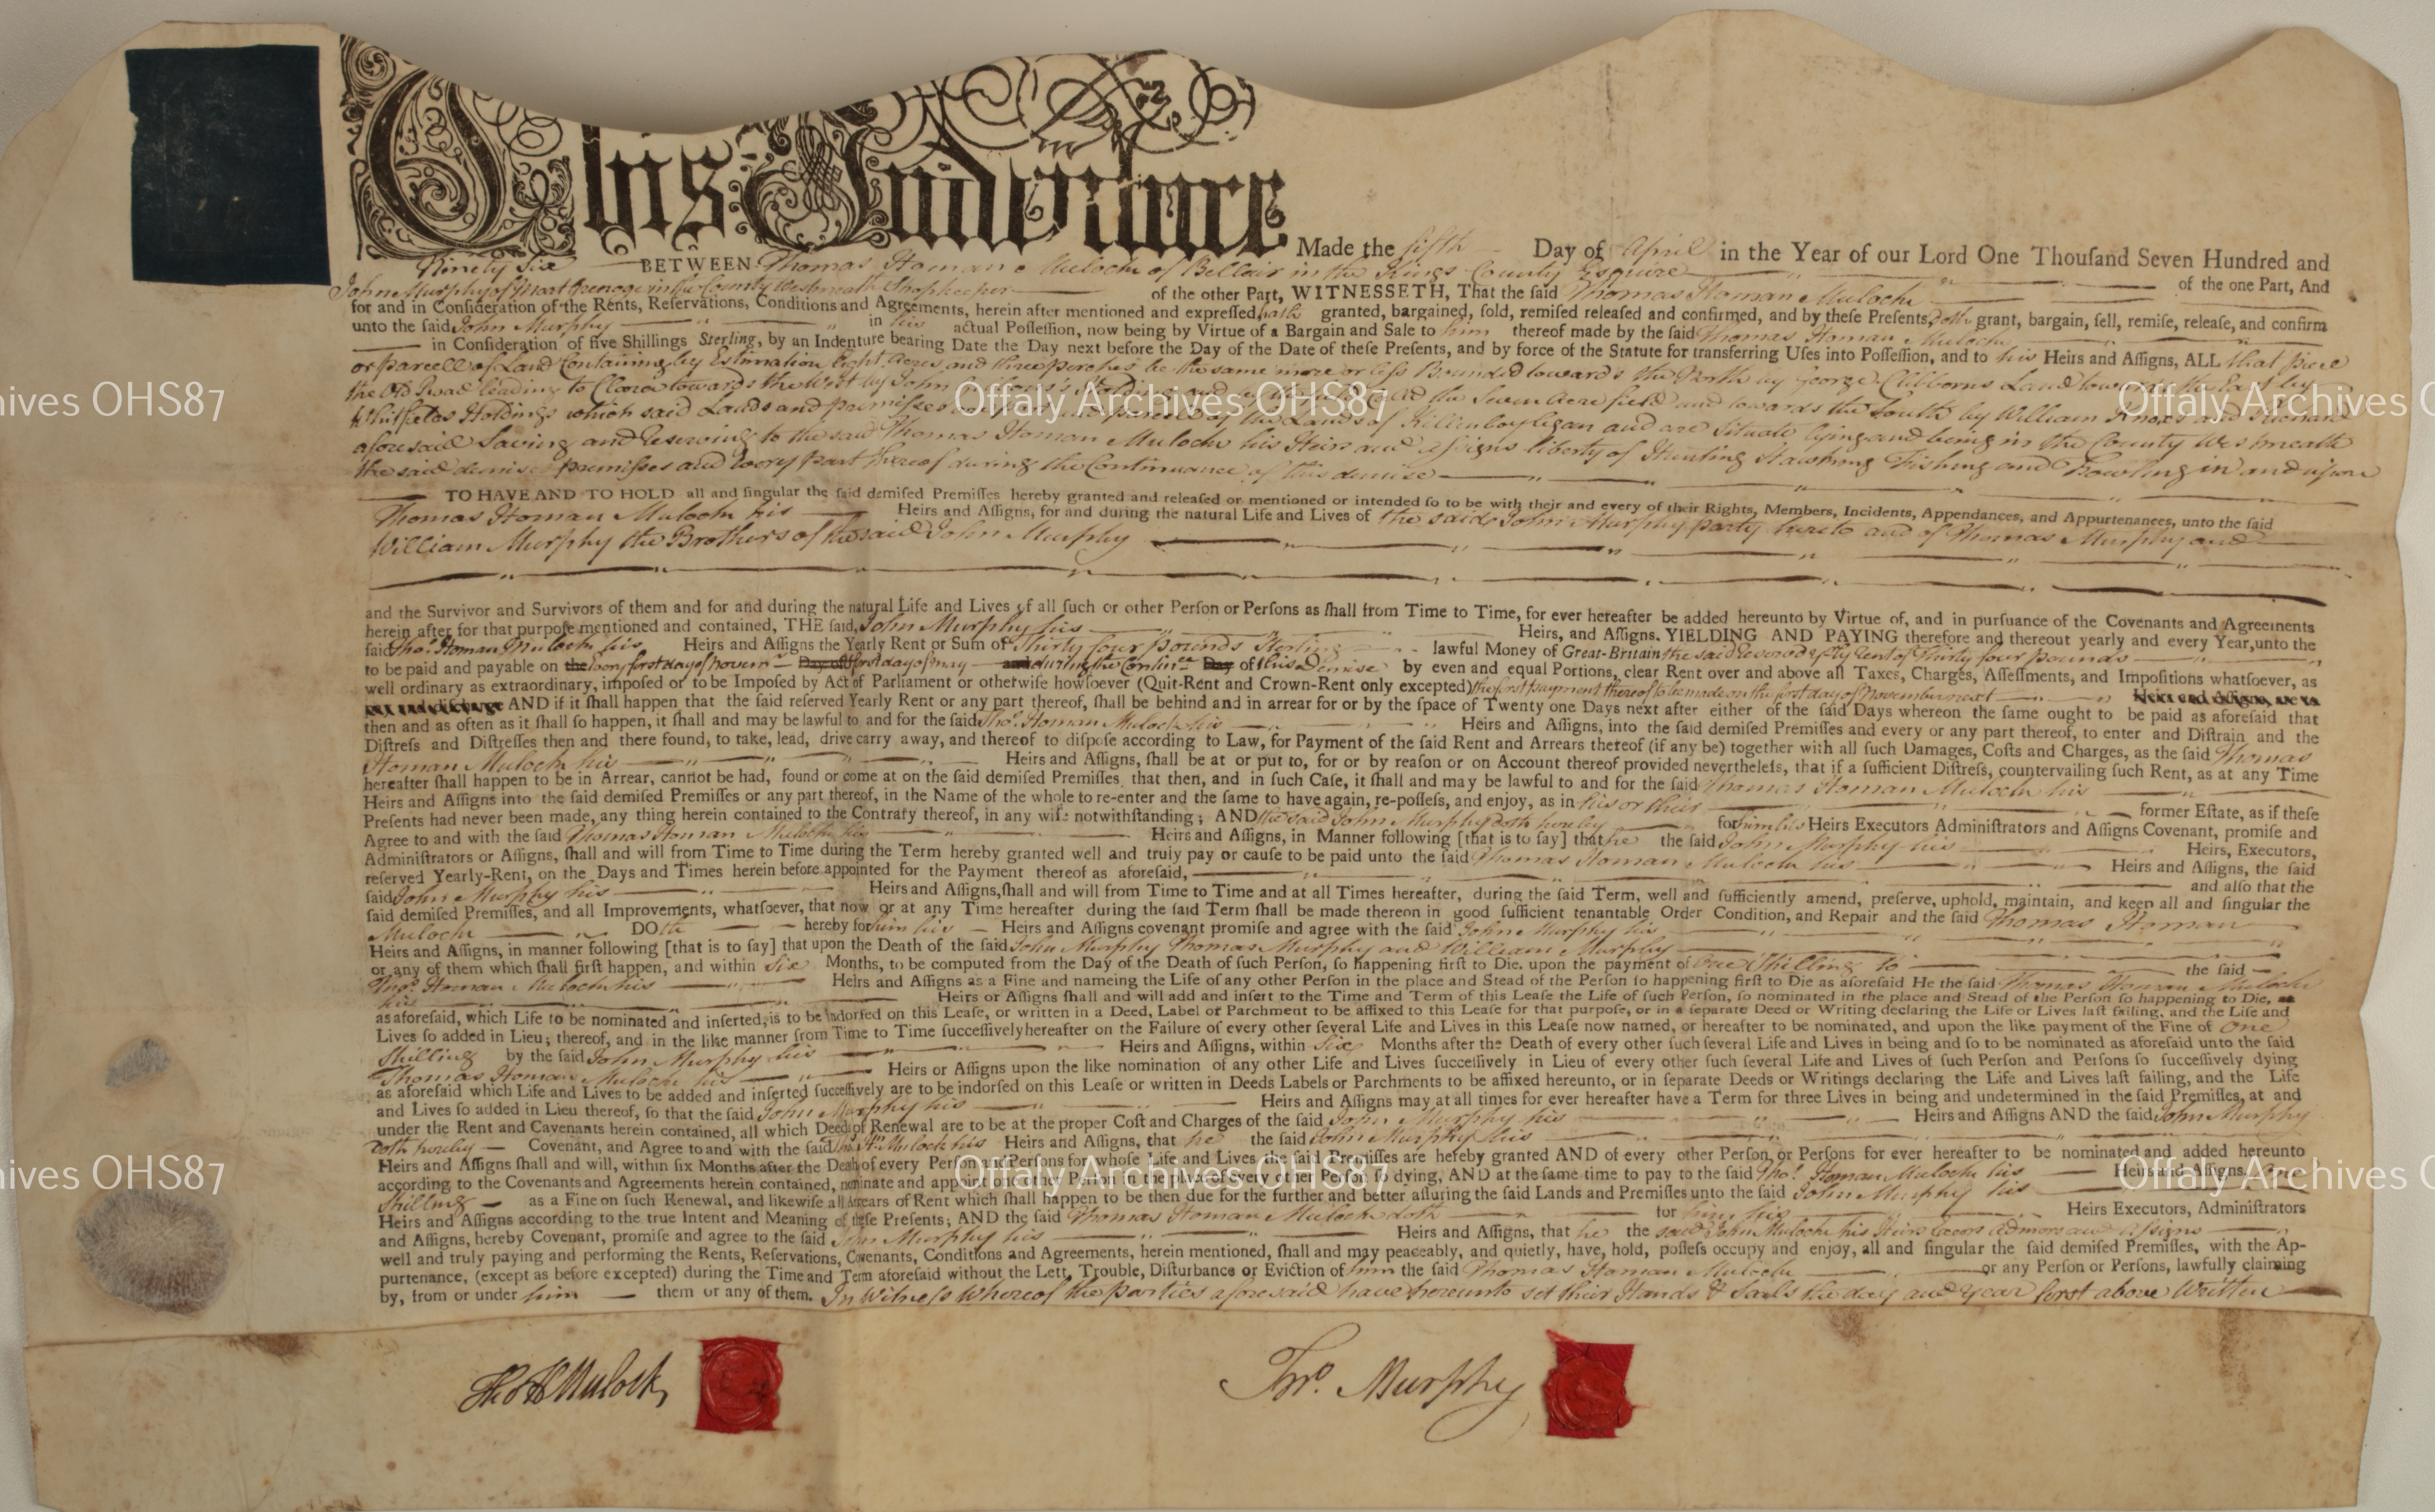 This Indenture Made the fifth Day of April in the Year of our Lord One Thouſand Seven Hundred and
Ninety Six BETWEEN Thomas Homan Mulock of Bellair in the Kings County Esquire of the one Part, And
John Murphy of in the County Westmeath Shopkeeper of the other Part, WITNESSETH, That the ſaid Thomas Homan Mulock
for and in Conſideration of the Rents, Reſervations, Conditions and Agreements, herein after mentioned and expreſſed, hath granted, bargained, ſold, remiſed releaſed and confirmed, and by theſe Preſents, doth grant, bargain, ſell, remiſe, releaſe, and confirm
unto the ſaid John Murphy in his actual Poſſeſſion, now being by Virtue of a Bargain and Sale to him thereof made by the ſaid Thomas Homan Mulock
in Conſideration of five Shillings Sterling, by an Indenture bearing Date the Day next before the Day of the Date of theſe Preſents, and by force of the Statute for transferring Uſes into Poſſeſſion, and to his Heirs and Aſſigns, ALL that piece
or parcell of Land Containing by Estimation Eight Acres and three perches be the same more or less Bounded towards the North by George Clibborns Land towards the East by
the Old Road leading to Clara towards the West by John Holding and the Seven Acre field and towards the South by William Knox and Homan
Holdings which said Lands and premisses are part and parcell of the Lands of Killenboylegan and are Situate lying and being in the County Westmeath
aforesaid Saving and Reserving to the said Thomas Homan Mulock his Heirs and Assigns liberty of Hunting Hawking Fishing and Fowling in and upon
the said demised premisses and Every part thereof during the Continuance of this demise
TO HAVE AND TO HOLD all and ſingular the ſaid demiſed Premiſſes hereby granted and releaſed or mentioned or intended ſo to be with their and every of their Rights, Members, Incidents, Appendances, and Appurtenances, unto the ſaid
Thomas Homan Mulock his Heirs and Aſſigns, for and during the natural Life and Lives of the said John Murphy party hereto and of Thomas Murphy and
William Murphy the Brothers of the said John Murphy
and the Survivor and Survivors of them and for and during the natural Life and Lives of all ſuch or other Perſon or Perſons as ſhall from Time to Time, for ever hereafter be added hereunto by Virtue of, and in purſuance of the Covenants and Agreements
herein after for that purpoſe mentioned and contained, THE ſaid, John Murphy his Heirs, and Aſſigns. YIELDING AND PAYING therefore and thereout yearly and every Year, unto the
ſaid Thos. Homan Mulock his Heirs and Aſſigns the Yearly Rent or Sum of Thirty four pounds Sterling lawful Money of Great-Britain the said Reserved Yearly Rent of Thirty four pounds
to be paid and payable on the every first day of Novem.r Day of first day of May and during the Contin.ce Day of this Demise by even and equal Portions, clear Rent over and above all Taxes, Charges, Aſſeſſments, and Impoſitions whatſoever, as
well ordinary as extraordinary, impoſed or to be Impoſed by Act of Parliament or otherwiſe howſoever (Quit-Rent and Crown-Rent only excepted) the first payment thereof to be made on the first day of November next Heirs and Aſſigns, are to
pay and diſcharge AND if it ſhall happen that the ſaid reſerved Yearly Rent or any part thereof, ſhall be behind and in arrear for or by the ſpace of Twenty one Days next after either of the ſaid Days whereon the ſame ought to be paid as aforeſaid that
then and as often as it ſhall ſo happen, it ſhall and may be lawful to and for the ſaid Thos. Homan Mulock his Heirs and Aſſigns, into the ſaid demiſed Premiſſes and every or any part thereof, to enter and Diſtrain and the
Diſtreſs and Diſtreſſes then and there found, to take, lead, drive carry away, and thereof to diſpoſe according to Law, for Payment of the ſaid Rent and Arrears thereof (if any be) together with all ſuch Damages, Coſts and Charges, as the ſaid Thomas
Homan Mulock his Heirs and Aſſigns, ſhall be at or put to, for or by reaſon or on Account thereof provided nevertheleſs, that if a ſufficient Diſtreſs, countervailing ſuch Rent, as at any Time
hereafter ſhall happen to be in Arrear, cannot be had, found or come at on the ſaid demiſed Premiſſes, that then, and in ſuch Caſe, it ſhall and may be lawful to and for the ſaid Thomas Homan Mulock his
Heirs and Aſſigns into the ſaid demiſed Premiſſes or any part thereof, in the Name of the whole to re-enter and the ſame to have again, re-poſſeſs, and enjoy, as in his or their former Eſtate, as if theſe
Preſents had never been made, any thing herein contained to the Contrary thereof, in any wiſe notwithſtanding; AND the said John Murphy doth hereby for him his Heirs Executors Adminiſtrators and Aſſigns Covenant, promiſe and
Agree to and with the ſaid Thomas Homan Mulock his Heirs and Aſſigns, in Manner following [that is to ſay] that he the ſaid John Murphy his Heirs, Executors,
Adminiſtrators or Aſſigns, ſhall and will from Time to Time during the Term hereby granted well and truly pay or cauſe to be paid unto the ſaid Thomas Homan Mulock his Heirs and Aſſigns, the ſaid
reſerved Yearly-Rent, on the Days and Times herein before appointed for the Payment thereof as aforeſaid, and alſo that the
ſaid John Murphy his Heirs and Aſſigns, ſhall and will from Time to Time and at all Times hereafter, during the ſaid Term, well and ſufficiently amend, preſerve, uphold, maintain, and keep all and ſingular the
ſaid demiſed Premiſſes, and all Improvements, whatſoever, that now or at any Time hereafter during the ſaid Term ſhall be made thereon in good ſufficient tenantable Order Condition, and Repair and the ſaid Thomas Homan
Mulock DOth hereby for him his Heirs and Aſſigns covenant promiſe and agree with the ſaid John Murphy his
Heirs and Aſſigns, in manner following [that is to ſay] that upon the Death of the ſaid John Murphy Thomas Murphy and William Murphy
or any of them which ſhall firſt happen, and within Six Months, to be computed from the Day of the Death of ſuch Perſon, ſo happening firſt to Die. upon the payment of One Shilling to the ſaid
Thos. Homan Mulock his Heirs and Aſſigns as a Fine and nameing the Life of any other Perſon in the place and Stead of the Perſon ſo happening firſt to Die as aforeſaid He the ſaid Thomas Homan Mulock
his Heirs or Aſſigns ſhall and will add and inſert to the Time and Term of this Leaſe the Life of ſuch Perſon, ſo nominated in the place and Stead of the Perſon ſo happening to Die, as
as aforeſaid, which Life to be nominated and inſerted, is to be Indorſed on this Leaſe, or written in a Deed, Label or Parchment to be affixed to this Leaſe for that purpoſe, or in a ſeparate Deed or Writing declaring the Life or Lives laſt failing, and the Life and
Lives ſo added in Lieu; thereof, and in the like manner from Time to Time ſucceſſively hereafter on the Failure of every other ſeveral Life and Lives in this Leaſe now named, or hereafter to be nominated, and upon the like payment of the Fine of One
Shilling by the ſaid John Murphy his Heirs and Aſſigns, within Six Months after the Death of every other ſuch ſeveral Life and Lives in being and ſo to be nominated as aforeſaid unto the ſaid
Thomas Homan Mulock his Heirs or Aſſigns upon the like nomination of any other Life and Lives ſucceſſively in Lieu of every other ſuch ſeveral Life and Lives of ſuch Perſon and Perſons ſo ſucceſſively dying
as aforeſaid which Life and Lives to be added and inſerted ſucceſſively are to be indorſed on this Leaſe or written in Deeds Labels or Parchments to be affixed hereunto, or in ſeparate Deeds or Writings declaring the Life and Lives laſt failing, and the Life
and Lives ſo added in Lieu thereof, ſo that the ſaid John Murphy his Heirs and Aſſigns may at all times for ever hereafter have a Term for three Lives in being and undetermined in the ſaid Premiſſes, at and
under the Rent and Cavenants herein contained, all which Deeds of Renewal are to be at the proper Coſt and Charges of the ſaid John Murphy his Heirs and Aſſigns AND the ſaid John Murphy
doth hereby Covenant, and Agree to and with the ſaid Thos. Hn. Mulock his Heirs and Aſſigns, that he the ſaid John Murphy his
Heirs and Aſſigns ſhall and will, within ſix Months after the Death of every Perſon and Perſons for whoſe Life and Lives the ſaid Premiſſes are hereby granted AND of every other Perſon, or Perſons for ever hereafter to be nominated and added hereunto
according to the Covenants and Agreements herein contained, nominate and appoint one other Perſon in the place of every other Perſon ſo dying, AND at the ſame time to pay to the ſaid Thos. Homan Mulock his Heirs and Aſſigns, One
Shilling as a Fine on ſuch Renewal, and likewiſe all Arrears of Rent which ſhall happen to be then due for the further and better aſſuring the ſaid Lands and Premiſſes unto the ſaid John Murphy his
Heirs and Aſſigns according to the true Intent and Meaning of theſe Preſents; AND the ſaid Thomas Homan Mulock doth for him his Heirs Executors, Adminiſtrators
and Aſſigns, hereby Covenant, promiſe and agree to the ſaid John Murphy his Heirs and Aſſigns, that he the said John Mulock his Heirs Execrs Admors and Assigns
well and truly paying and performing the Rents, Reſervations, Covenants, Conditions and Agreements, herein mentioned, ſhall and may peaceably, and quietly, have, hold, poſſeſs occupy and enjoy, all and ſingular the ſaid demiſed Premiſſes, with the Ap-
purtenance, (except as before excepted) during the Time and Term aforeſaid without the Lett, Trouble, Diſturbance or Eviction of him the ſaid Thomas Homan Mulock or any Perſon or Perſons, lawfully claiming
by, from or under him them or any of them. In Witness Whereof the parties aforesaid have hereunto set their Hands & Seals the day and Year first above Written
Tho H Mulock
Jno. Murphy
Offaly Archives OHS87
Offaly Archives OHS87